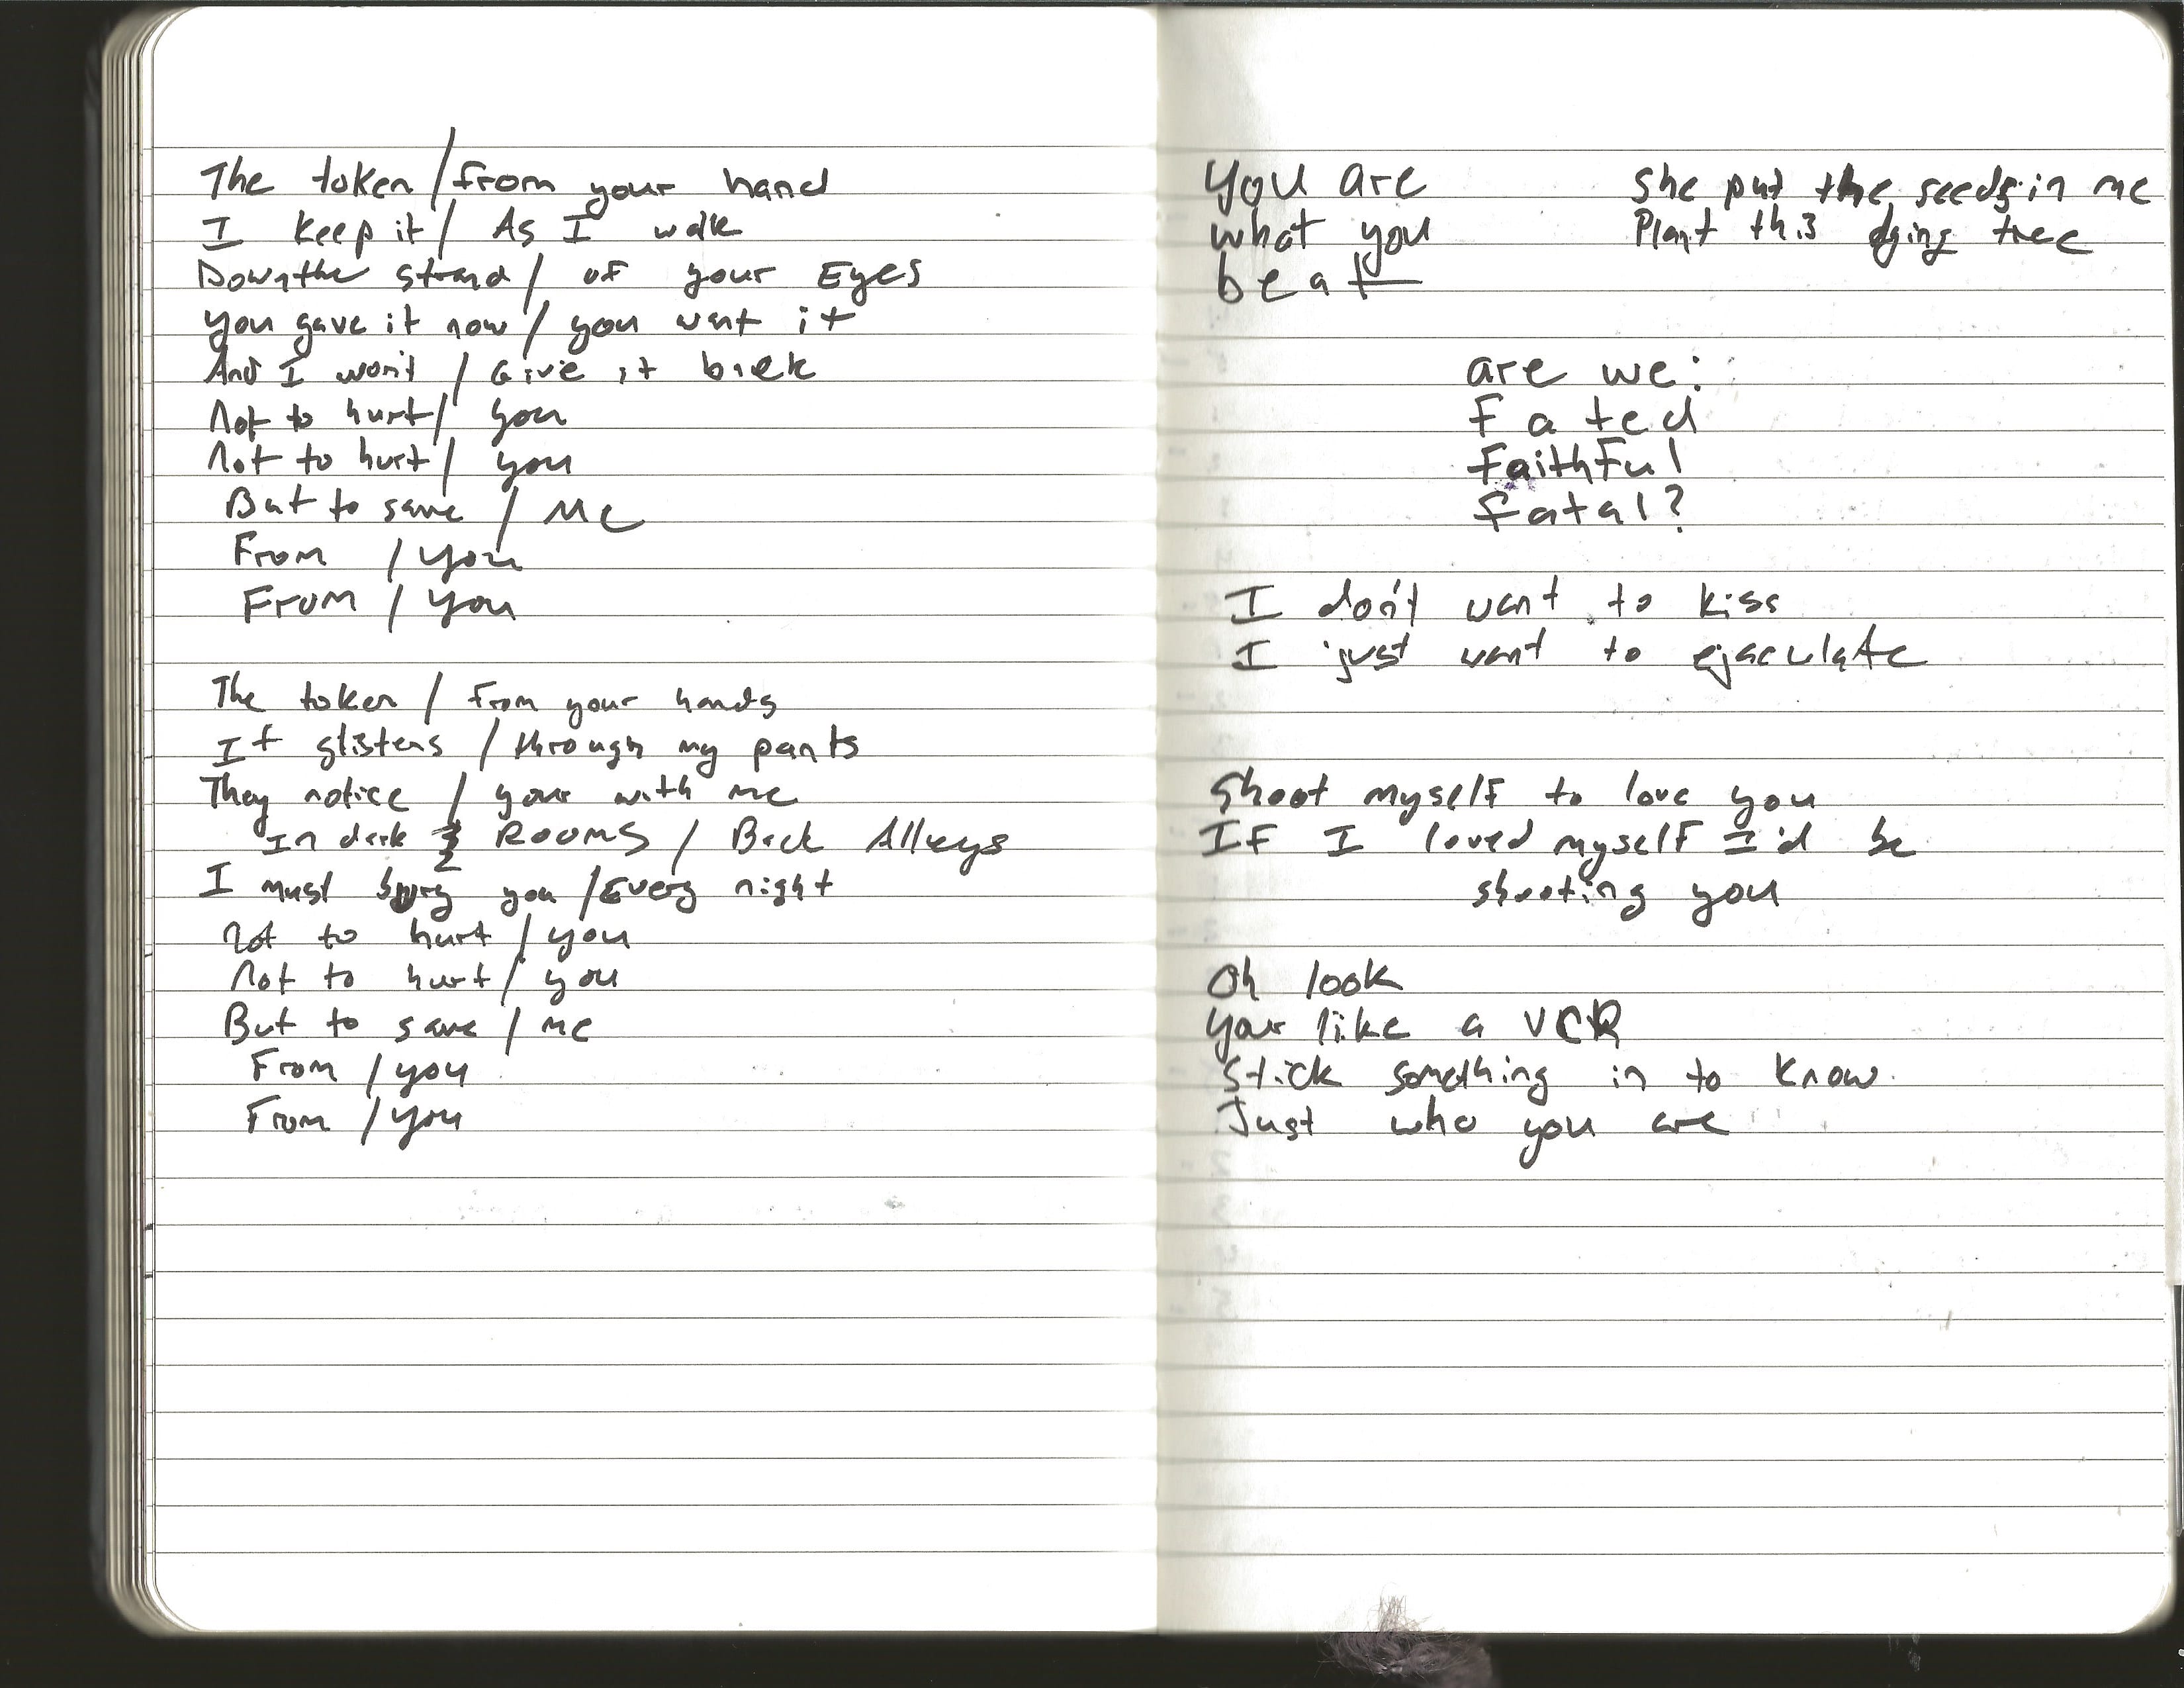 The token / from your hand
I keep it / As I walk
Down the strand / of your Eyes
you gave it now / you want it
And I won't / Give it back
Not to hurt / you
Not to hurt / you
But to save / Me
From / you
From / you
The token / From your hands
It glistens / through my pants
They notice / your with me
In dark ROOMS / Back Alleys
I must bury you / Every night
Not to hurt / you
Not to hurt / you
But to save / me
From / you
From / you
you are
what you
beat
She put the seeds in me
Plant this dying tree
are we:
Fated
FaithFul
fatal?
I don't want to kiss
I just want to ejaculate
Shoot myself to love you
IF I loved myself I'd be
shooting you
Oh look
your like a VCR
Stick something in to know
Just who you are